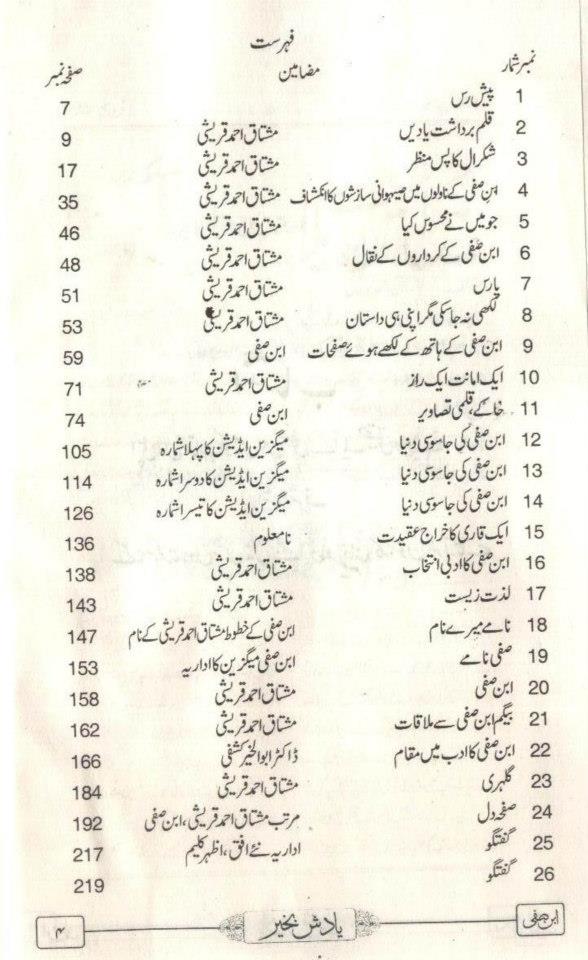 فہرست
نمبر شمار مضامین صفحہ نمبر
1 پیش رس 7
2 قلم برداشتہ یادیں مشتاق احمد قریشی 9
3 شکرال کا پس منظر مشتاق احمد قریشی 17
4 ابن صفی کے ناولوں میں صیہوانی سازشوں کا انکشاف مشتاق احمد قریشی 35
5 جو میں نے محسوس کیا مشتاق احمد قریشی 46
6 ابن صفی کے کرداروں کے نقال مشتاق احمد قریشی 48
7 پارس مشتاق احمد قریشی 51
8 لکھی نہ جاسکی مگر اپنی ہی داستان مشتاق احمد قریشی 53
9 ابن صفی کے ہاتھ کے لکھے ہوئے صفحات ابن صفی 59
10 ایک امانت ایک راز مشتاق احمد قریشی 71
11 خاکے، قلمی تصاویر ابن صفی 74
12 ابن صفی کی جاسوسی دنیا میگزین ایڈیشن کا پہلا شمارہ 105
13 ابن صفی کی جاسوسی دنیا میگزین ایڈیشن کا دوسرا شمارہ 114
14 ابن صفی کی جاسوسی دنیا میگزین ایڈیشن کا تیسرا شمارہ 126
15 ایک قاری کا خراج عقیدت نامعلوم 136
16 ابن صفی کا ادبی انتخاب مشتاق احمد قریشی 138
17 لذت زیست مشتاق احمد قریشی 143
18 نامے میرے نام ابن صفی کے خطوط مشتاق احمد قریشی کے نام 147
19 صفی نامے ابن صفی میگزین کا اداریہ 153
20 ابن صفی مشتاق احمد قریشی 158
21 بیگم ابن صفی سے ملاقات مشتاق احمد قریشی 162
22 ابن صفی کا ادب میں مقام ڈاکٹر ابوالخیر کشفی 166
23 گلہری مشتاق احمد قریشی 184
24 صفحہ دل مرتب مشتاق احمد قریشی، ابن صفی 192
25 گفتگو اداریہ نئے افق، اظہر کلیم 217
26 گفتگو 219
ابن صفی یادش بخیر ۴